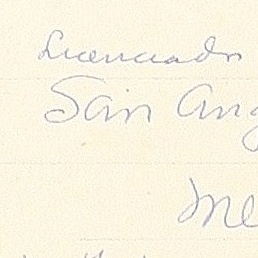 Licenciado
San Ang
Me